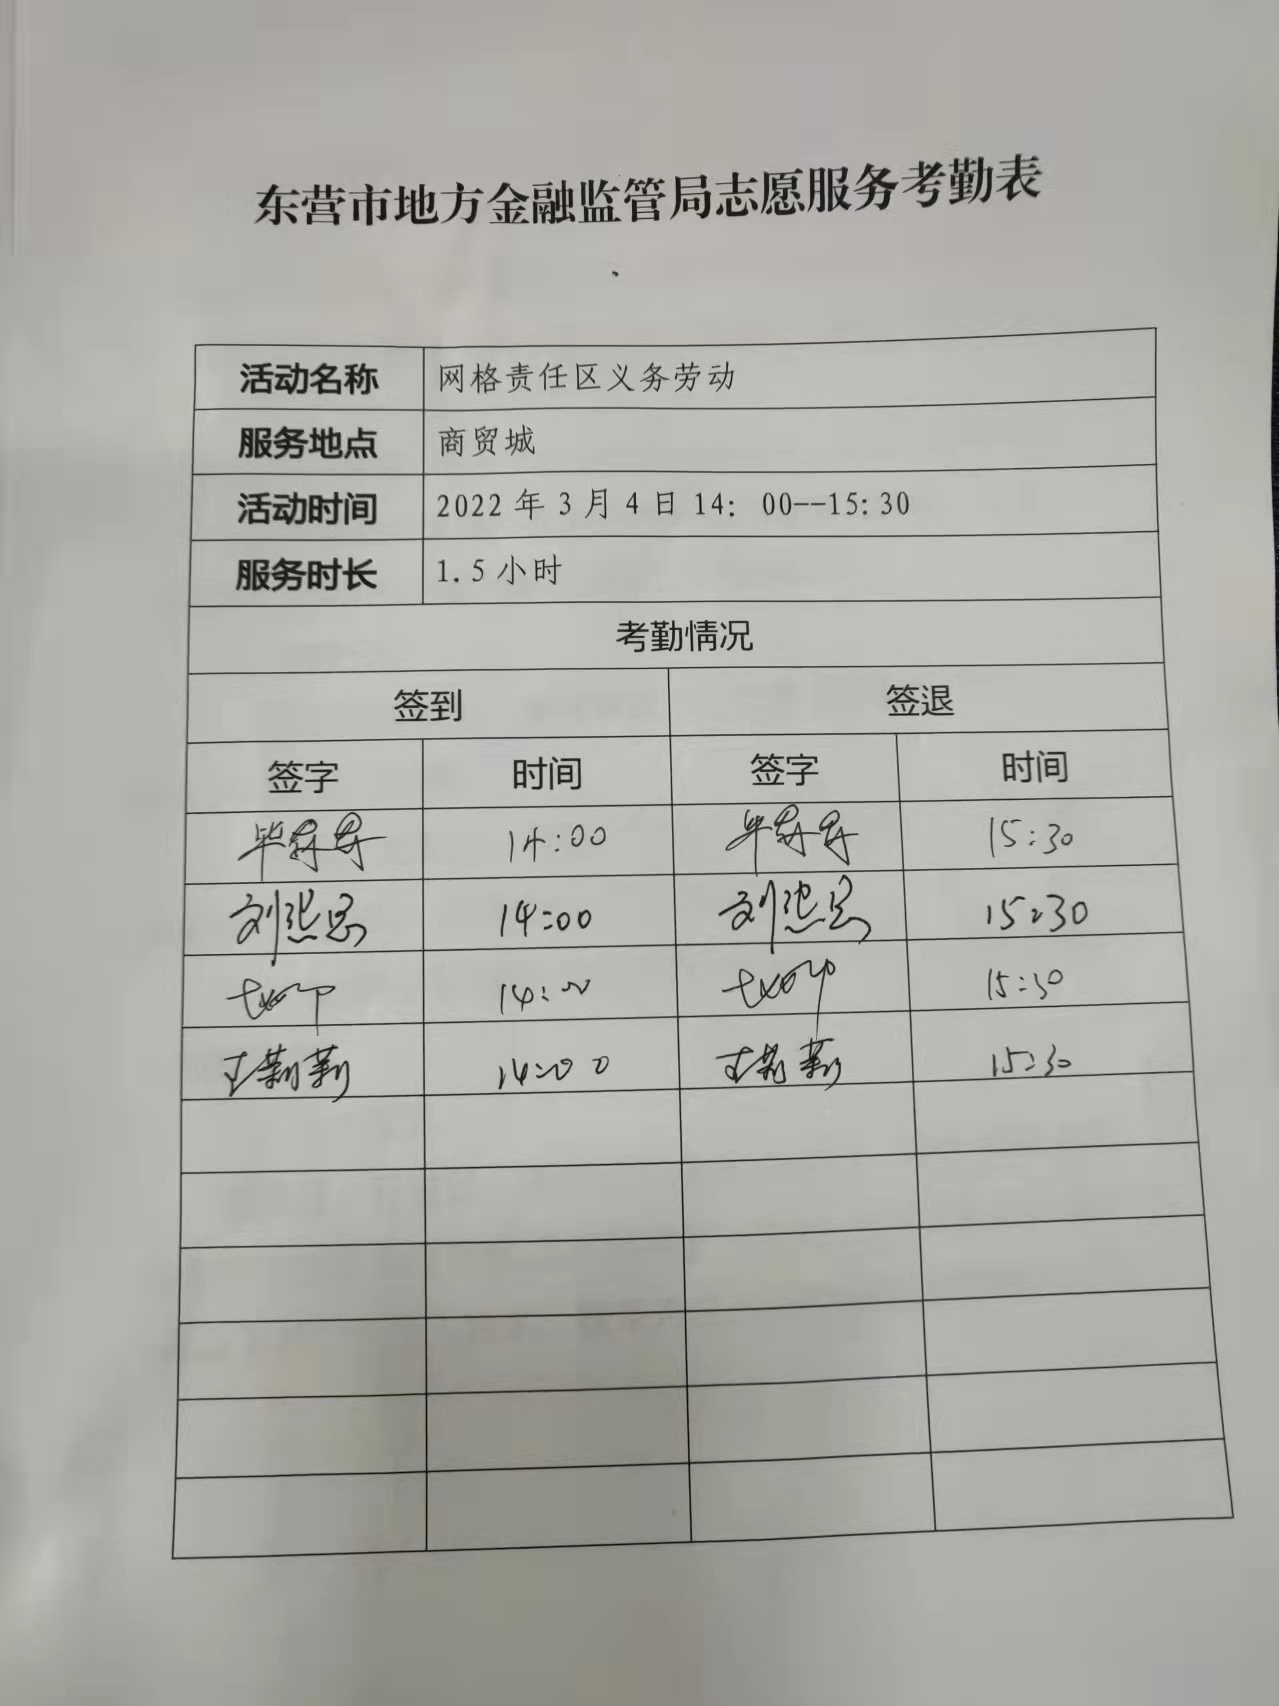 东营市地方金融监管局志愿服务考勤表
活动名称 网格责任区义务劳动
服务地点 商贸城
活动时间 2022年3月4日14：00--15:30
服务时长 1.5小时
考勤情况
签到 签退
签字 时间 签字 时间
14:00 15:30
刘 14:00 刘 15:30
14:00 15:30
王莉莉 14:00 王莉莉 15:30